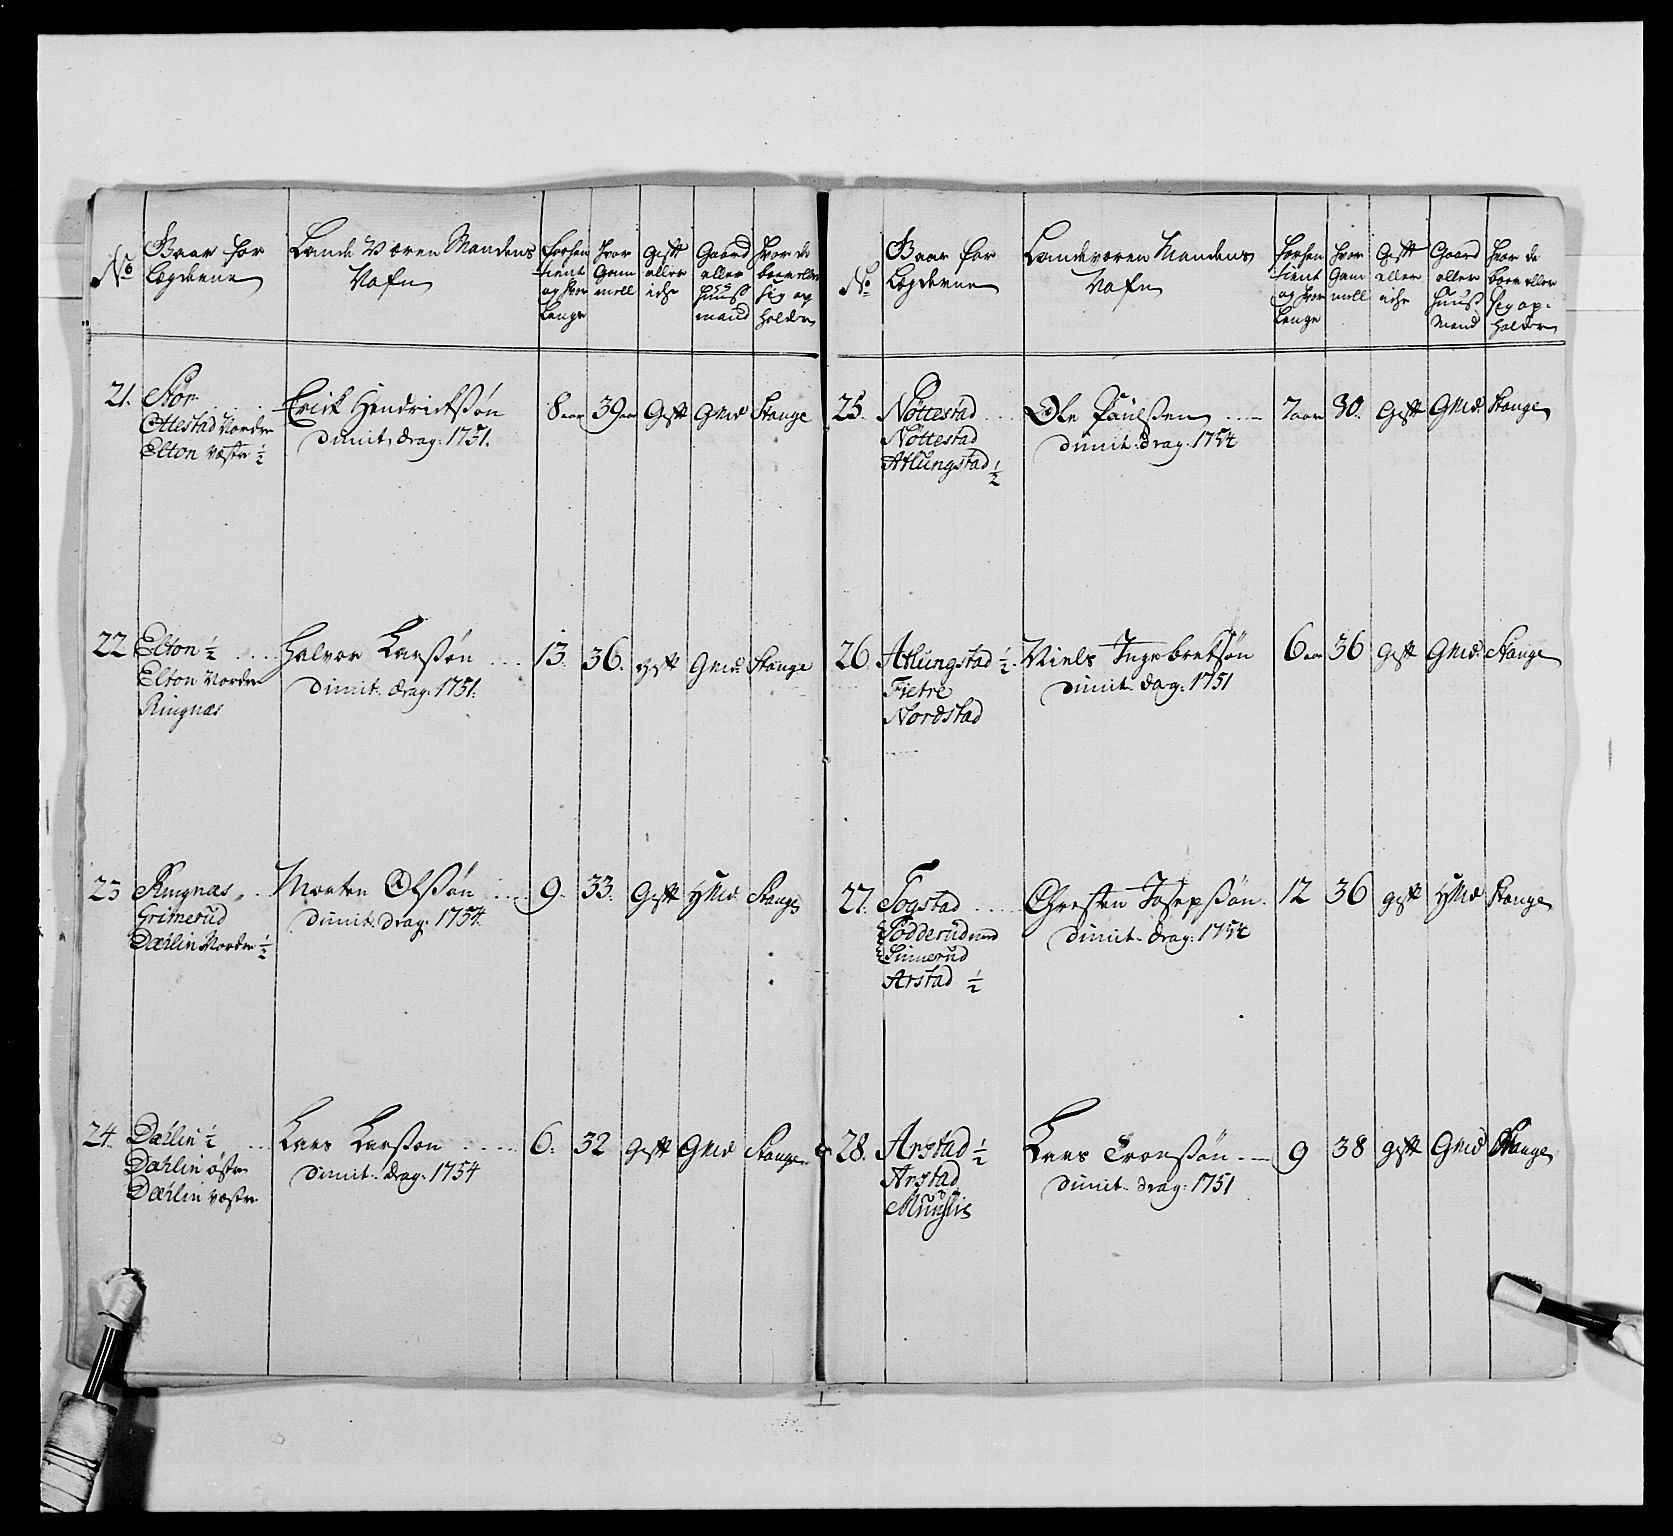 No
Baar for
Lægderne
Lande Væren Mandens
Nafn
forhen
tient
og hvor
Lenge
hvor
Gam
mell
Gift
eller
icke
Gaard
eller
Huus
mand
hvor de
boer eller
sig op
holder
21. Stør
Ottestad Nordre
Elton Væstre ½
Erick Hendrichssøn
dimit. drag: 1751.
8 aar 39 aar Gift GMd Stange
22 Elton ½
Elton Nordre
Ringnæs
Halvor Larssøn
dimit. drag: 1751.
13. 36. gift GMd: Stange
23 Ringnæs
Grimerud
Dæhlin Nordre ½
Morten Olssøn
dimit. drag: 1754.
9. 33. Gift HMd. Stange
24. Dæhlin ½
Dæhlin østre
Dæhlin væstre
Lars Larsson
dimit. drag: 1754
6. 32 gift GMd Stange
No
Baar for
Lægderne
Landeværen Mandens
Nafn
forhen
tient
og hvor
Lenge
hvor
Gam
mell
Gift
eller
icke
Gaard
eller
Huus
Mand
hvor de
boer eller
sig op-
holder
25. Nøttestad
Nøttestad
Atlungstad ½
Ole Paulssen
dimit. drag: 1754
7 aar 30. Gift GMd. Stange
26. Atlungstad ½
Fietre
Nordstad
Niels Ingebretsøn
dimit. dag: 1751
6 aar 36 Gift GMd. Stange
27. Togstad
Tødderud
Simerud
Arstad ½
Christen Josepssøn
dimit. drag: 1754
12 36 gift HMd Stange
28. Arstad ½
Arstad
Muuslis
Lars Tronssøn
dimit. drag: 1751
9 38 gift GMd Stange